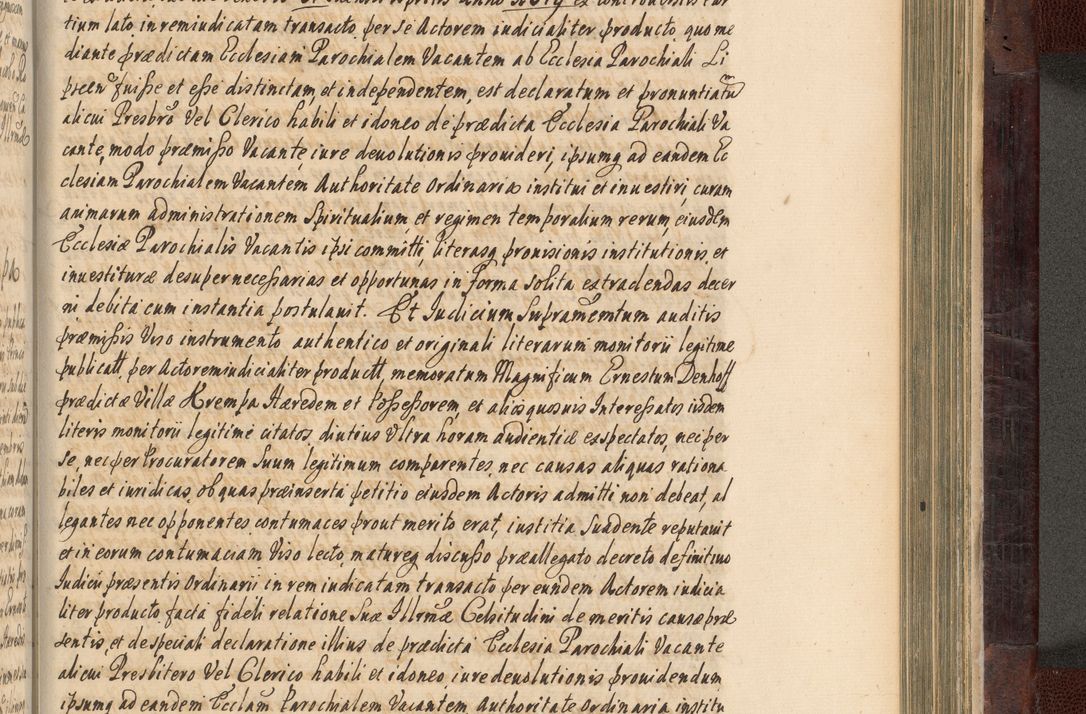 tium lato in rem iudicatam transacto per se Actorem iudicialiter producto, quo me
diante prædictam Ecclesiam Parochialem Vacantem ab Ecclesia Parochiali Li
pscen fuisse et esse distinctam, et independentem, est declaratum et pronuntiatũ
alicui Presbrõ Vel Clerico habili et idoneo de prædicta Ecclesia Parochiali Va
cante, modo præmisso Vacante, iure deuolutionis prouideri, ipsumq ad eandem Ec
clesiam Parochialem Vacantem Authoritate Ordinaria institui et inuestiri, curam
animarum administrationem Spiritualium, et regimen temporalium rerum, eiusdem
Ecclesiæ Parochialis Vacantis ipsi committi, literasq prouisionis institutionis, et
inuestituræ desuper necessarias et opportunas in forma solita extradendas decer
ni debita cum instantia postulauit. Et Iudicium Supramẽmtum auditis
præmissis Viso instrumento authentico et originali literarum monitorii legitime
publicatt. per Actorem iudicialiter productt, memoratum Magnificum Ernestum Denhoff
prædictæ Villæ Krempa Hæredem et Possessorem, et alios quosuis Interessatos iisdem
literis monitorii legitimè citatos, diutius Ultra horam audientiæ exspectatos, nec per
se, nec per Procuratorem Suum legitimum comparentes, nec causas aliquas rationa
biles et iuridicas, ob quas præinserta petitio eiusdem Actoris admitti non debeat, al
legantes nec opponentes contumaces prout merito erat, iustitia Suadente reputauit
et in eorum contumaciam Viso lecto, matureq discusso præallegato decreto definitiuo
Iudicii præsentis Ordinarii in rem iudicatam transacto per eundem Actorem iudicia
liter producto, facta fideli relatione Suæ Illrmæ Celsitudini de meritis causæ præ
sentis, et de speciali declaratione illius de prædicta Ecclesia Parochiali Vacante
alicui Presbitero Vel Clerico habili et idoneo, iure deuolutionis prouidendum
ipsumq ad eandem Ecclam Parochialem Vacantem Authoritate Ordinaria institu